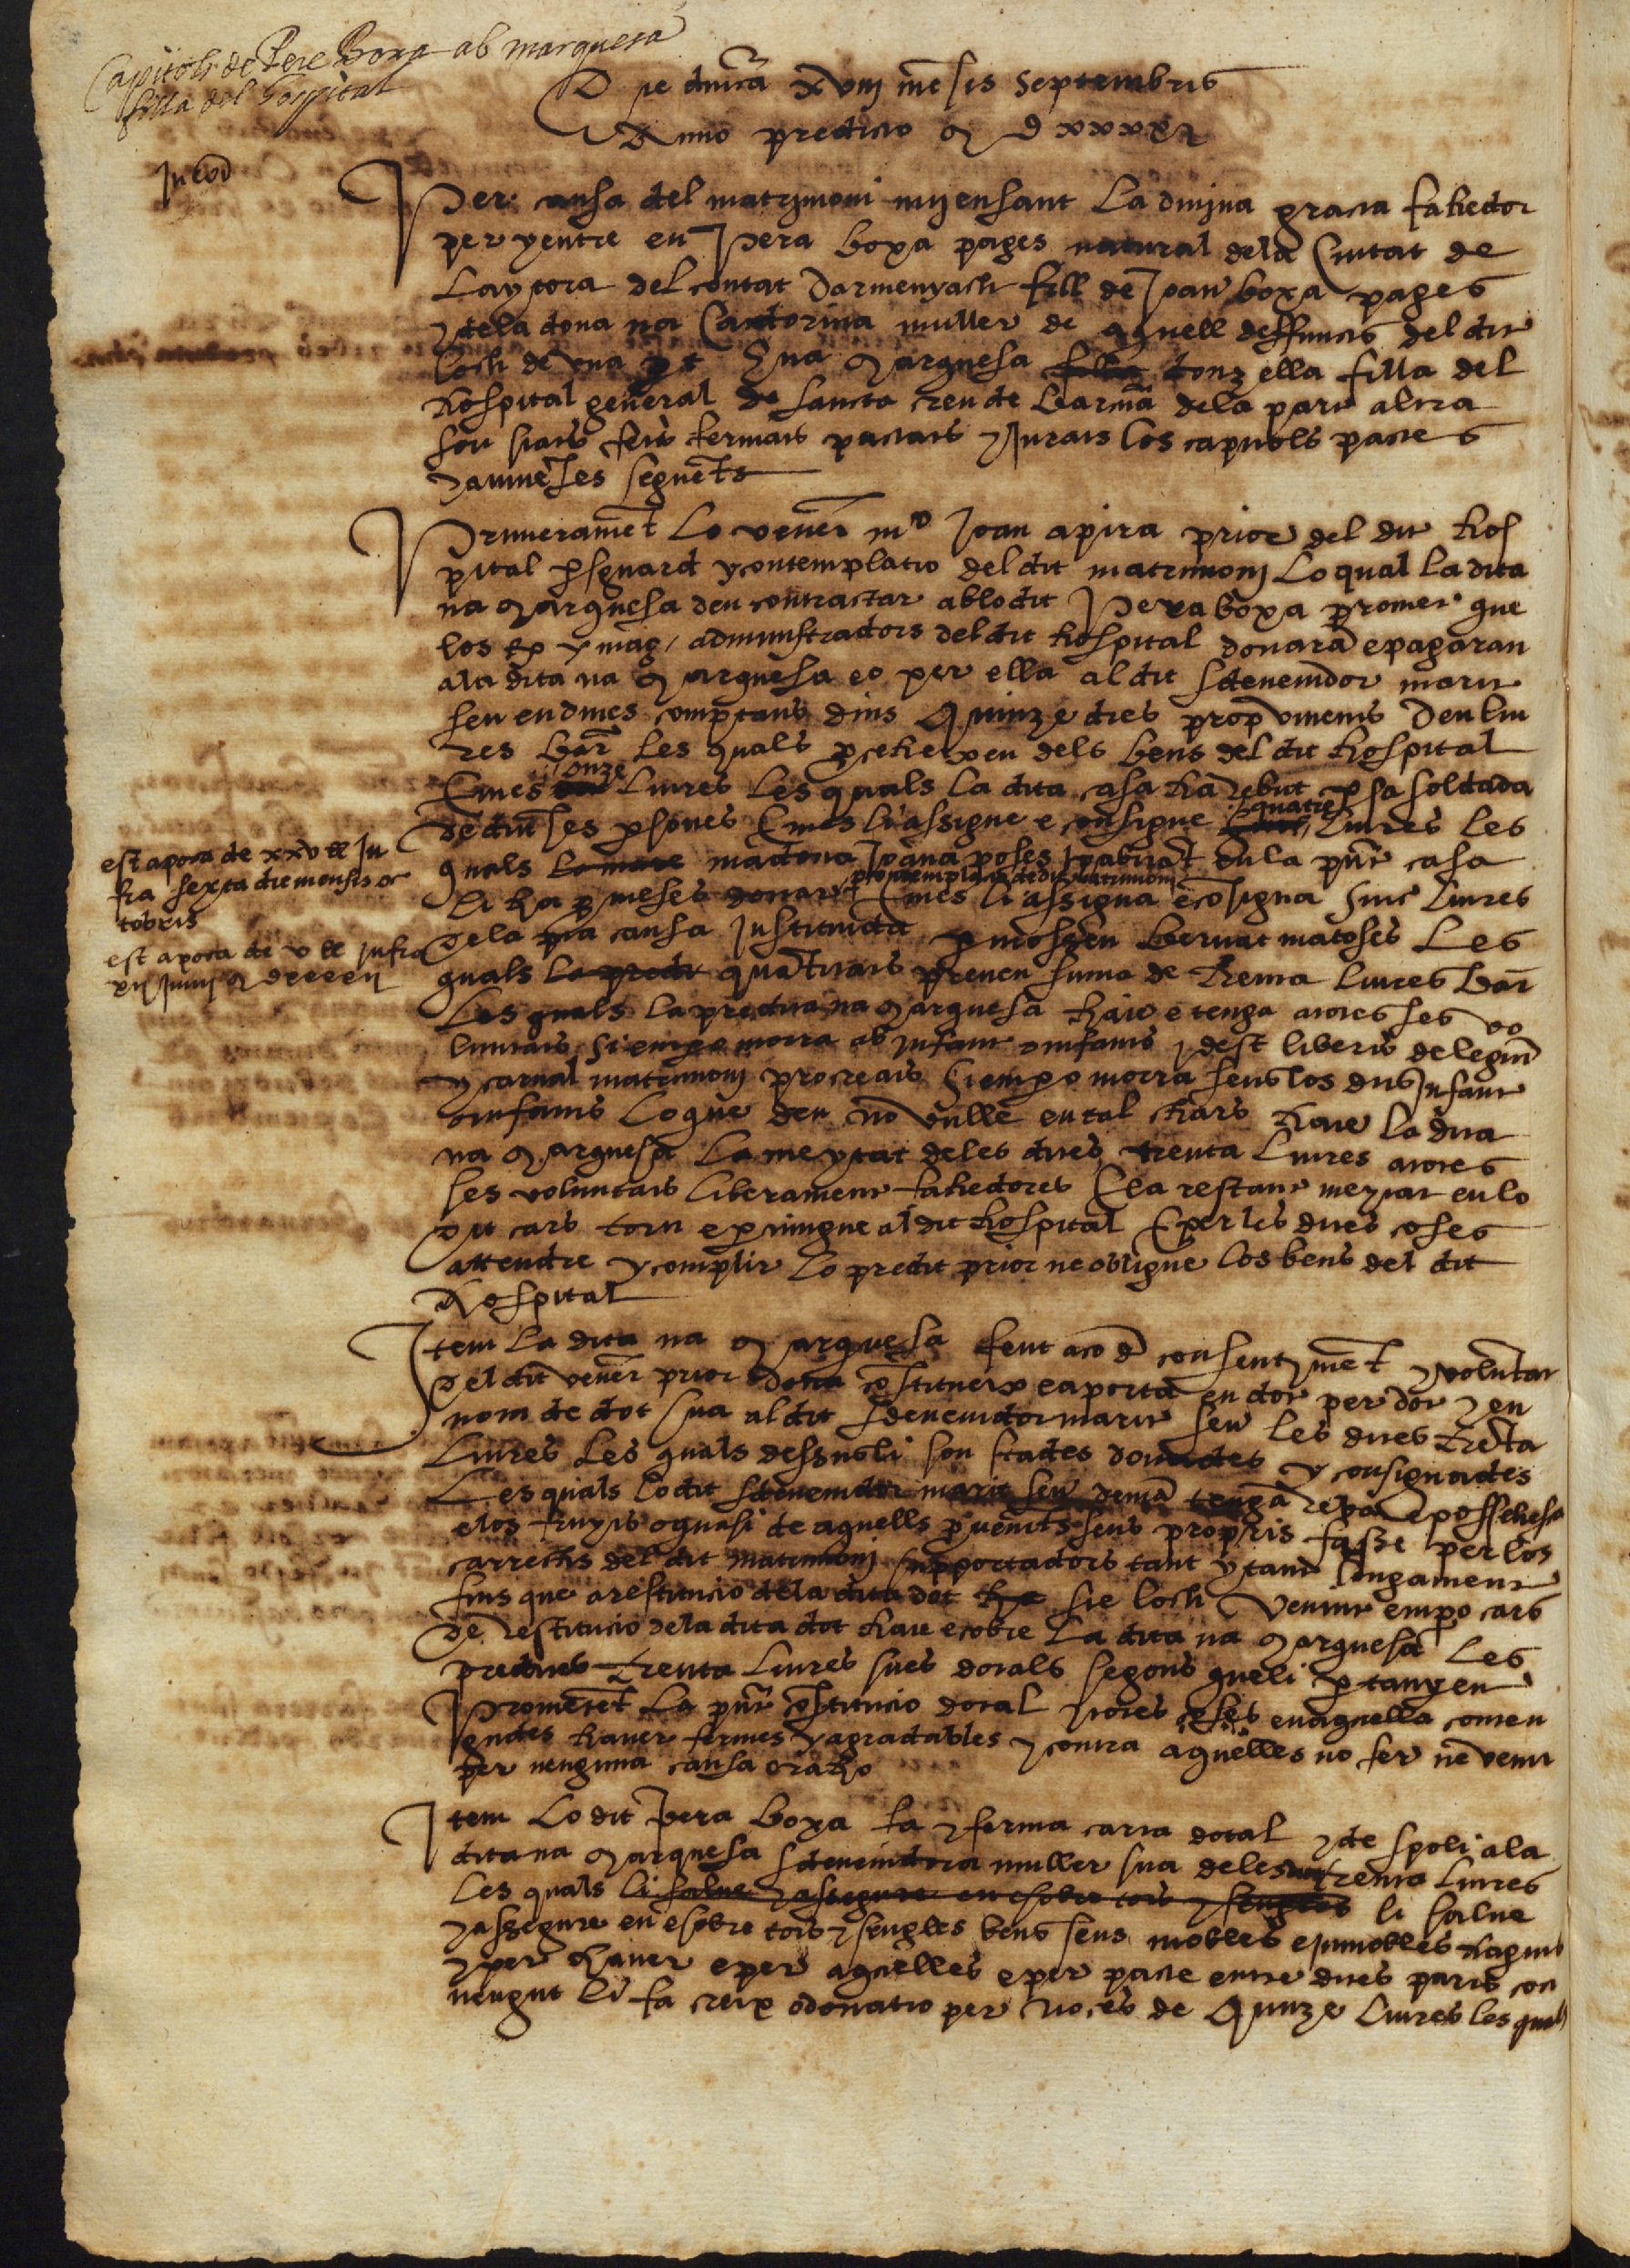 Capitols de Pere Boxa ab marquesa
filla del hospital
Die dnica xviij mesis Septembris
Anno predicto M D xxxx
Jn cod
Per causa del matrimoni mijensant La divina gracia fahedor
per y entre en Pera boxa pages natural dela Ciutat de
Laytora del contat Darmenyach fill de Joan boxa pages
y dela dona na Catorina muller de aquell deffuncts del dit
loch de una pt E na Marquesa filla donzella filla del
hospital general de sancta creu de barna dela part altra
son stats fets fermats pactats y jurats los capitols pactes
y avineses seguets
Primeramet Lo vener mo Joan apira prior del dit hos
pital p sguard y contemplatio del dit matrimonj Lo qual la dita
na Marquesa deu contractar ab lo dit Pera boxa promet que
los Rs y mag administradors del dit hospital donara e pagaran
ala dita na Marquesa eo per ella al dit sdevenidor marit
seu en dines comptans dins Quinze dies prop vinents Deu liu
res bar Les quals pcehexen dels bens del dit hospital
E mes onze Liures Les quals la dita casa ha rebut p sa soldada
de diuses psones E mes li assigne e consigne quatre Liures les
quals la mare madona Joana poses habitat en la pnt casa
li ha pmeses donar p contemplatio de dit matrimoni E mes li assigna e cosigna Sinc Liures
est apoca de xxv ll In
fra sexta die mensis oc
tobris
Dela pia causa Instituida p mossen bernat matoses Les
est apoca de v ll infra
quals la predi quatitats prenen suma de trenta liures bar
Les quals la predita na Marquesa haie e tenga a totes ses vo
luntats si empo morra ab infant o infants y dest liberts de legitim
y carnal matrimonj procreats E si empo morra sens los dits Infant
o infants lo que deu no vulle en tal chars haie la dita
na Marquesa La meytat de les dites trenta Liures a totes
ses voluntats liberament fahedores E la restant meytat en lo
dit cars torn e pvingue al dit hospital E per les dites coses
attendre y complir lo predit prior ne obligue los bens del dit
Hospital
Item la dita na Marquesa fent aco d consentimet y voluntat
del dit vener prior dona costitueix e aporta en dot per dot y en
nom de dot sua al dit sdevenidor marit seu les dites treta
Liures Les quals dessus li son stades donades y consignades
Les quals lo dit sdevenidor marit seu dema tenga repia e possehesca
e los fruyts o quasi de aquells puenits seus propris fasse per los
carrechs del dit matrimonj supportadors tant y tant longament
fins que a restitucio dela dita dot hx sie loch Venint empo cars
de restitucio dela dita dot haie e cobre La dita na Marquesa Les
predites trenta Liures sues dotals segons que li ptanyen
Prometet La pnt costitucio dotal y totes coses en aquella conten
gudes haver fermes y agradables y contra aquelles no fer ne venir
per neguna causa o raho
Item Lo dit Pera boxa fa y ferma carta dotal y de spoli ala
dita na Marquesa sdevenidora muller sua deles trenta Liures
Les quals li salue y assegura en e sobre tots y sengles li salue
y assegure en e sobre tots y sengles bens seus mobles e inmobles haguts
y per haver e per aquelles e per pacte entre dites parts con
vengut li fa creix o donatio per noces de Quinze Liures les quals